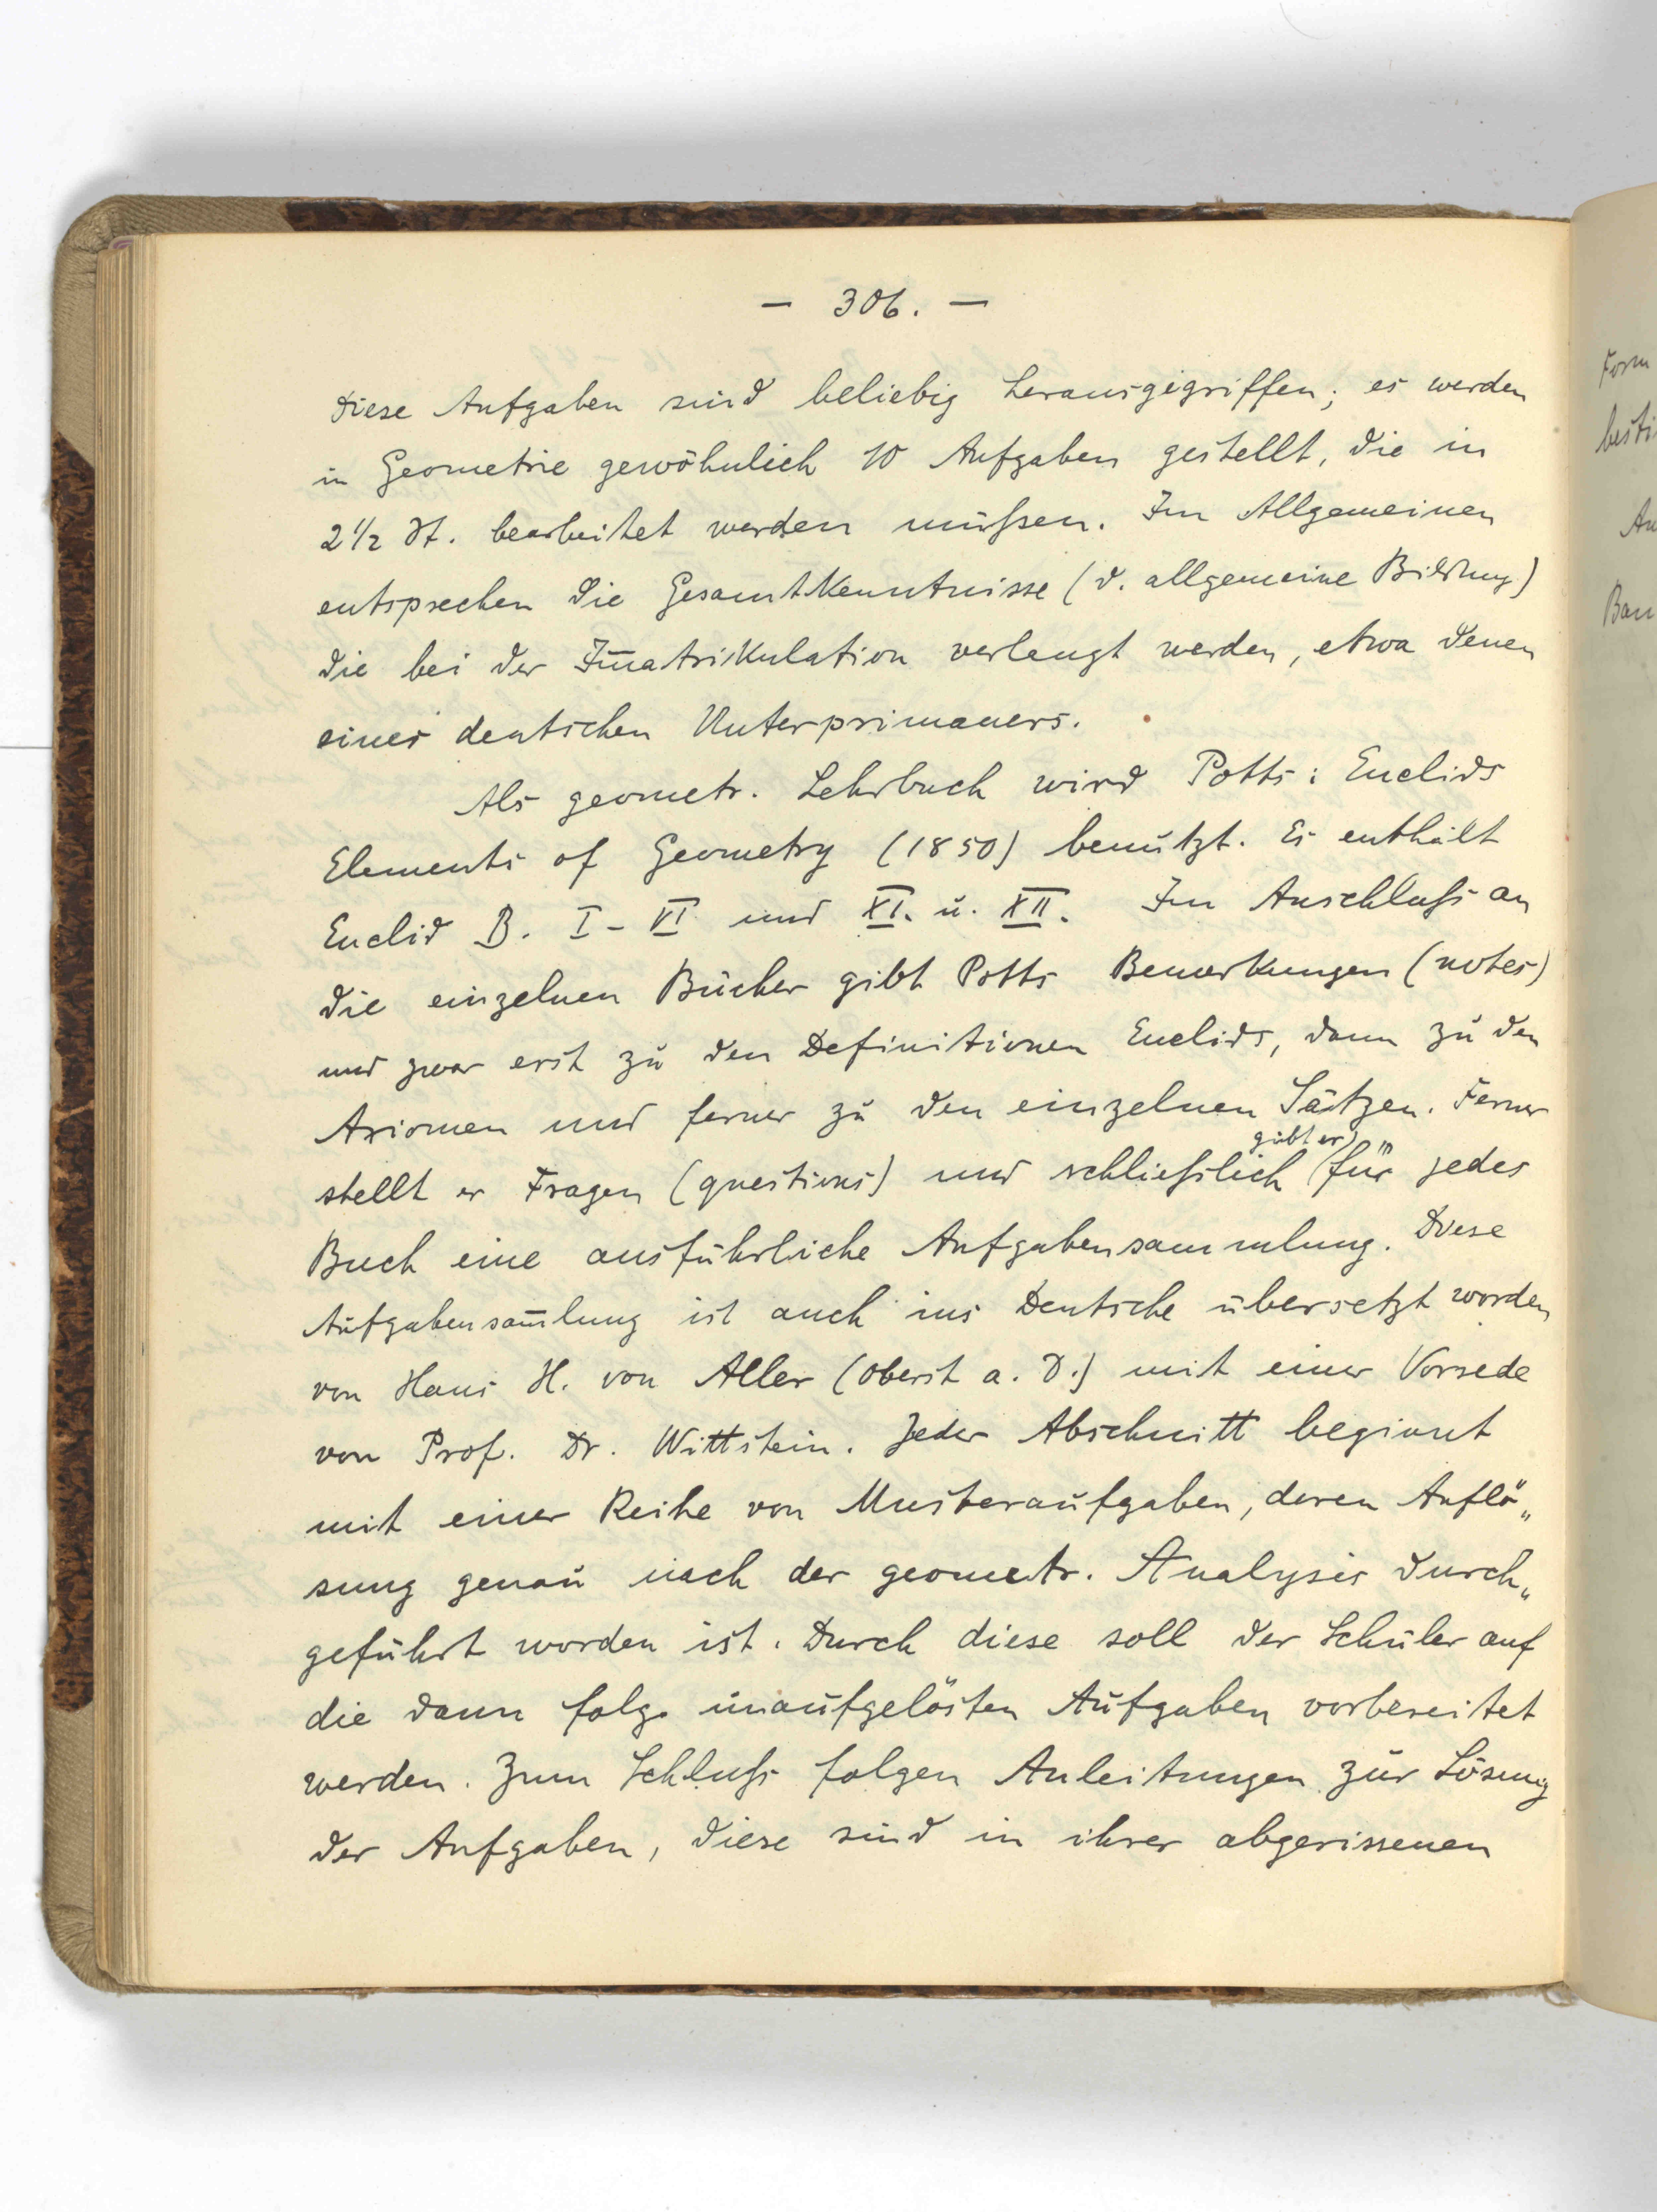 — 306. —
Diese Aufgaben sind beliebig herausgegriffen; es werden
in Geometrie gewöhnlich 10 Aufgaben gestellt, die in
2 1/2 St. bearbeitet werden müßen. Im Allgemeinen
entsprechen die Gesamtkenntnisse (d. allgemeine Bildung)
die bei der Im̄atrikulation verlangt werden, etwa denen
eines deutschen Unterprimaners.
Als geometr. Lehrbuch wird Potts: Euclids
Elements of Geometry (1850) benutzt. Es enthält
Euclid B. I - VI und XI. u. XII. Im Anschluß an
die einzelnen Bücher gibt Potts Bemerkungen (notes)
und zwar erst zu den Definitionen Euclids, dann zu den
Axiomen und ferner zu den einzelnen Sätzen. Ferner
gibt er
stellt er Fragen (questions) und schließlich für jedes
Buch eine ausführliche Aufgabensammlung. Diese
Aufgabensam̄lung ist auch ins Deutsche übersetzt worden
von Hans H. von Aller (Oberst a. D.) mit einer Vorrede
von Prof. Dr. Wittstein. Jeder Abschnitt beginnt
mit einer Reihe von Musteraufgaben, deren Auflö„
sung genau nach der geometr. Analysis durch„
geführt worden ist. Durch diese soll der Schüler auf
die dann folg. unaufgelösten Aufgaben vorbereitet
werden. Zum Schluß folgen Anleitungen zur Lösung
der Aufgaben, diese sind in ihrer abgerissenen
Form